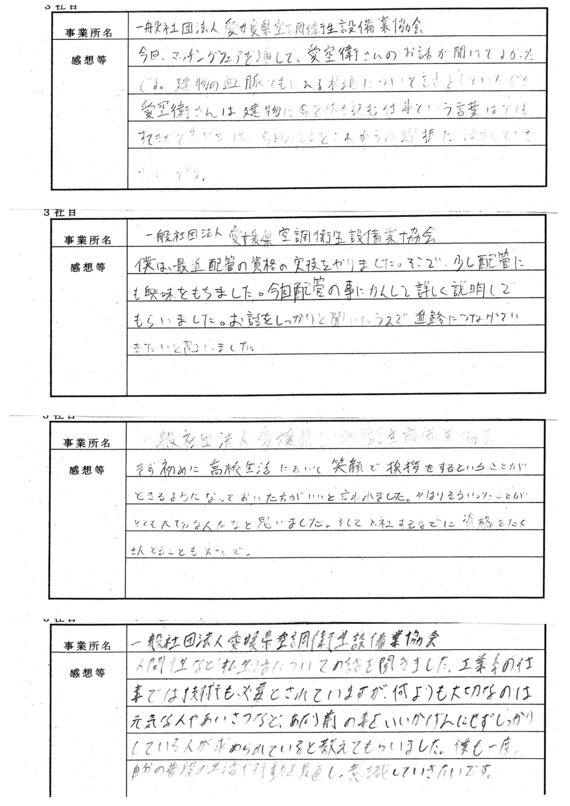 3社目
事業所名 一般社団法人 愛媛県空調衛生設備業協会
感想等 今日、マッチングフェアを通して、愛空衛さんのお話が聞けてよかった
です。建物の血脈ともいえる配管について
愛空衛さんは建物に命を吹き込む仕事という言葉はとても
すてきだと今日の話をこれからの選択に活かしていき
たいです。
3社目
事業所名 一般社団法人 愛媛県空調衛生設備業協会
感想等 僕は、最近配管の資格の実技をやりました。そこで、少し配管に
も興味をもちました。今回配管の事にかんして詳しく説明して
もらいました。お話をしっかりと聞いたうえで進路につなげてい
きたいと思いました。
3社目
事業所名 一般社団法人 愛媛県空調衛生設備業協会
感想等 まず初めに高校生活において笑顔で挨拶をするということが
できるようになっておいた方がいいと言われました。やはりそういったことが
とても大切なんだなと思いました。そして入社するまでに資格をたく
さんとることも大切
3社目
事業所名 一般社団法人 愛媛県空調衛生設備業協会
感想等 人間性など私生活についての話を聞きました。工業系の仕
事では技術も必要とされていますが、何よりも大切なのは
元気な人やあいさつなど、あたり前の事をいいかげんにせずしっかり
している人が求められていると教えてもらいました。僕も一度、
自分の普段の生活や行動を見直し、意識していきたいです。